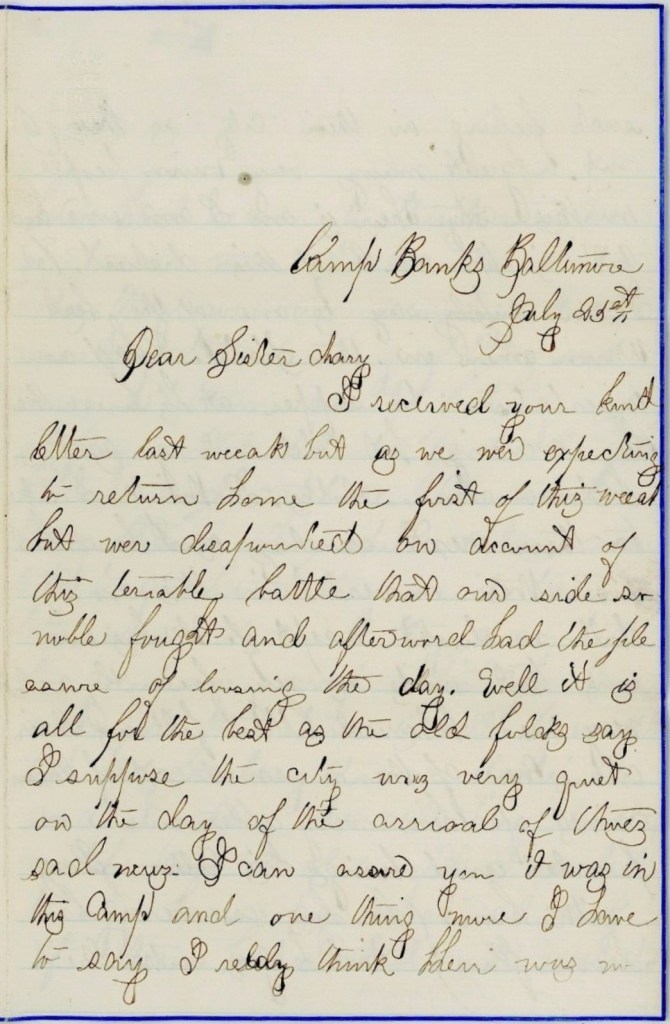 Camp Banks Baltimore
July 25 st
Dear Sister Mary
I received your kind
letter last weeak but as we wer expecting
to return home the first of this weeak
but wer disapointed on account of
this teriable battle that our side so
noble fought and afterword had the ple
asure of loosing the day. Well it is
all for the best as the old folcks say
I suppose the city was very quiet
on the day of the arrival of thees
sad news. I can asure you it was in
this Camp and one thing more I have
to say I think was